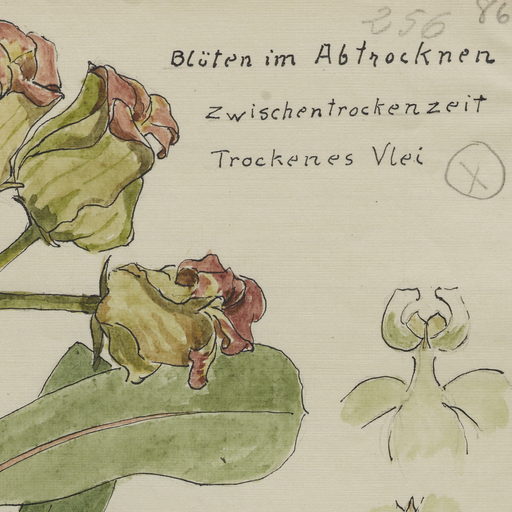 256 86
Blüten im Abtrocknen
Zwischentrockenzeit
Trockenes Vlei
X